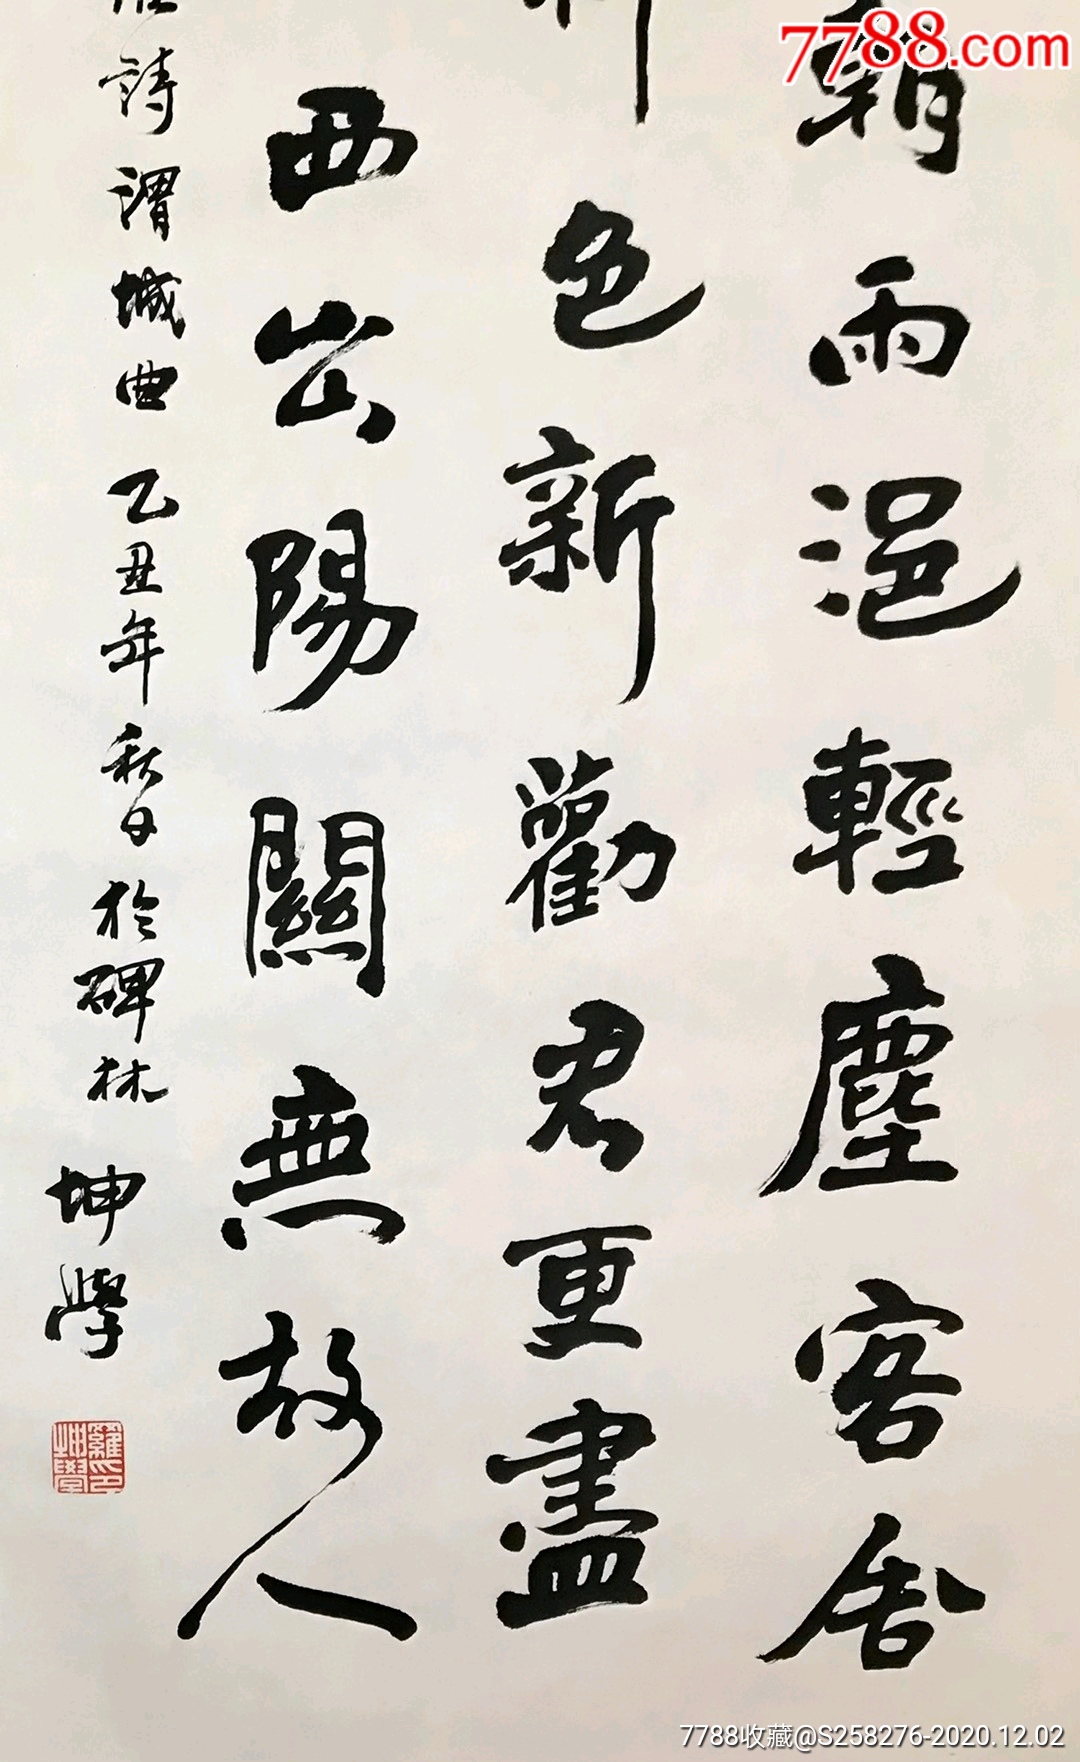 7788.com
朝雨浥輕塵客舍
柳色新勸君更盡
西出陽關無故人
維詩渭城曲乙丑年秋日於碑林
坤學
羅坤學印
7788收藏@S258276-2020.12.02